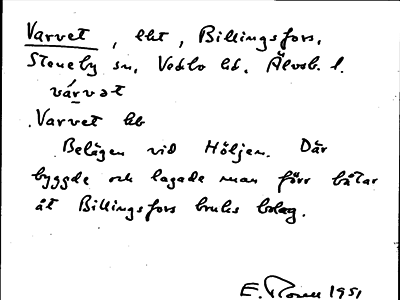 Varvet, lht, Billingsfors,
Steneby sn, Vedbo hd, Älvsb. l.
várvət
Varvet lht
Belägen vid Höljen. Där
byggde och lagade man förr båtar
åt Billingsfors bruks bolag.
E. 1951